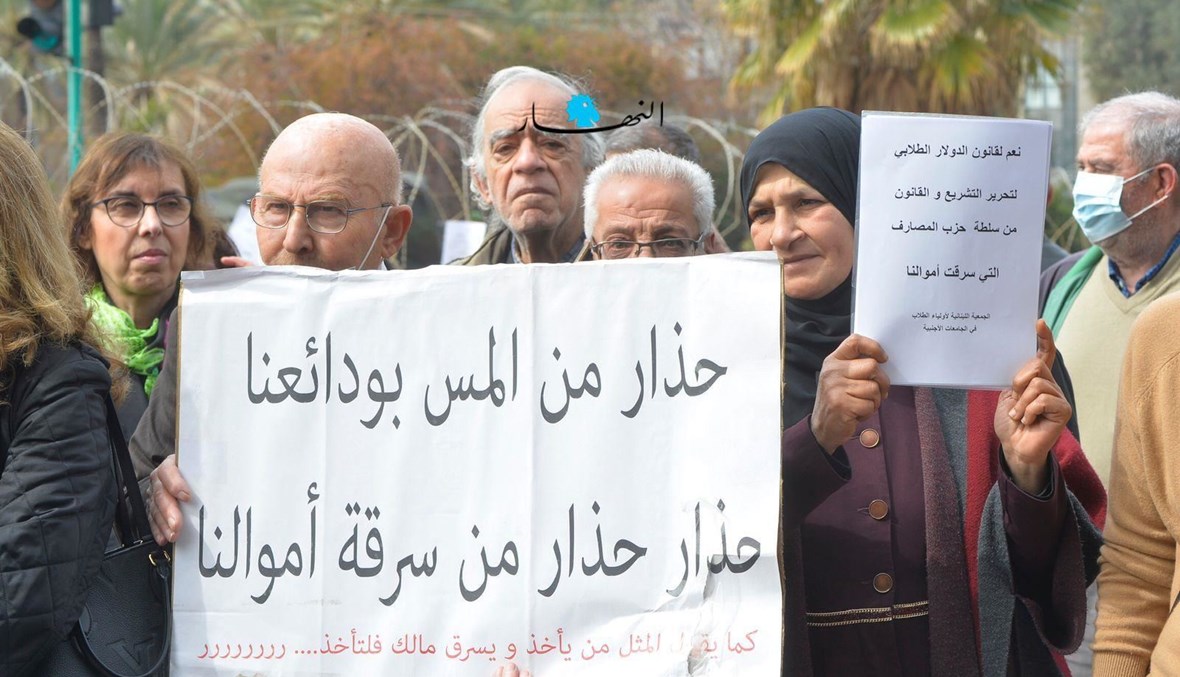 النهار
نعم لقانون الدولار الطلابي
لتحرير التشريع و القانون
من سلطة حزب المصارف
التي سرقت أموالنا
الجمعية اللبنانية لأولياء الطلاب
في الجامعات الاجنبية
حذار من المس بودائعنا
حذار حذار من سرقة أموالنا
كما يقول المثل من يأخذ و يسرق مالك فلتأخذ.... رررررررر